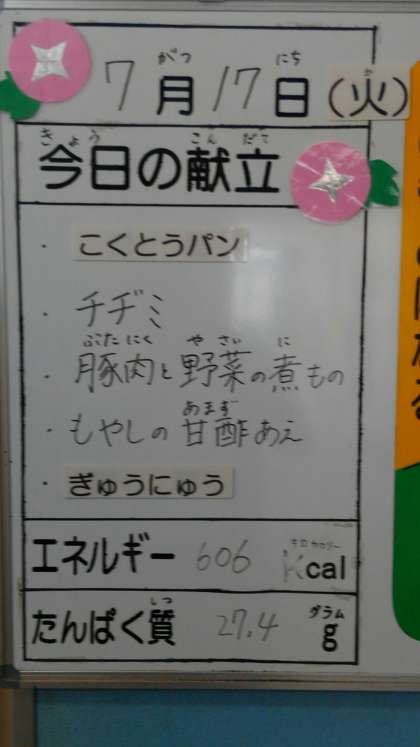 7月17日(火)
今日の献立
・こくとうパン
・チヂミ
・豚肉と野菜の煮もの
・もやしの甘酢あえ
・ぎゅうにゅう
エネルギー 606 Kcal
たんぱく質 27.4 g